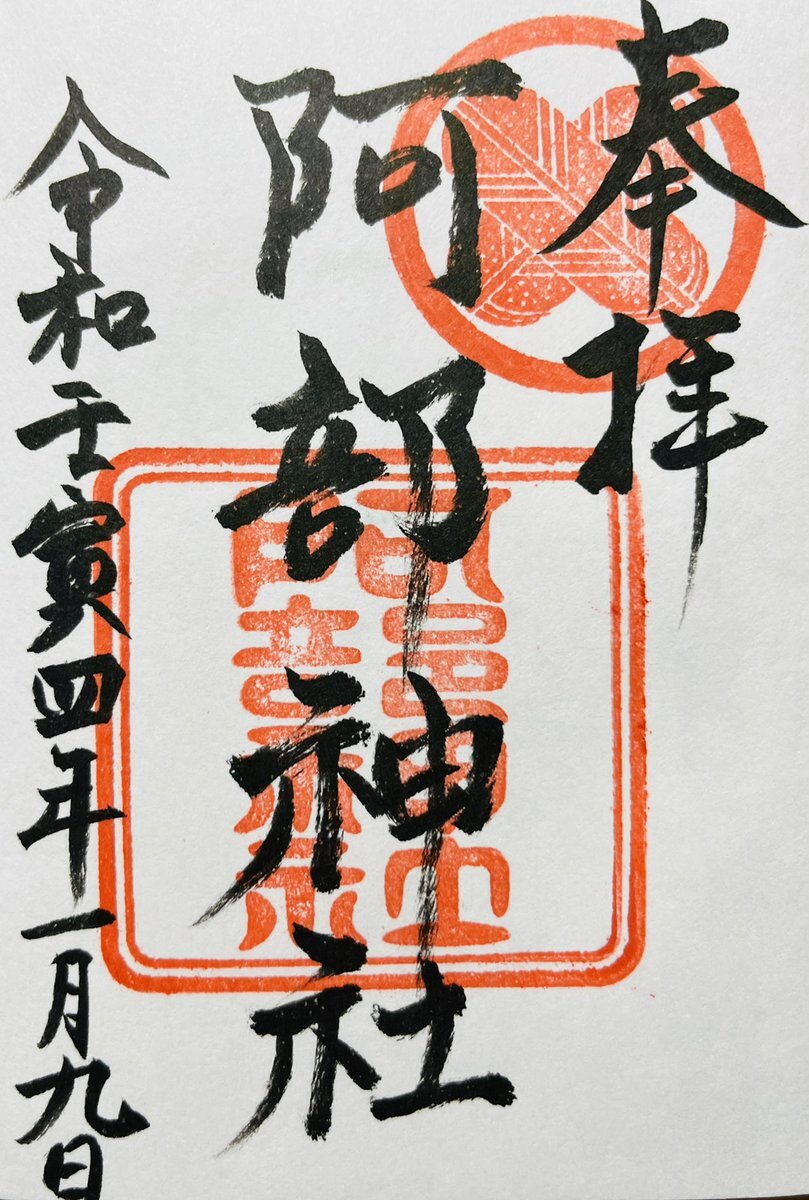 奉拝
阿部神社
阿部神社
令和壬寅四年一月九日